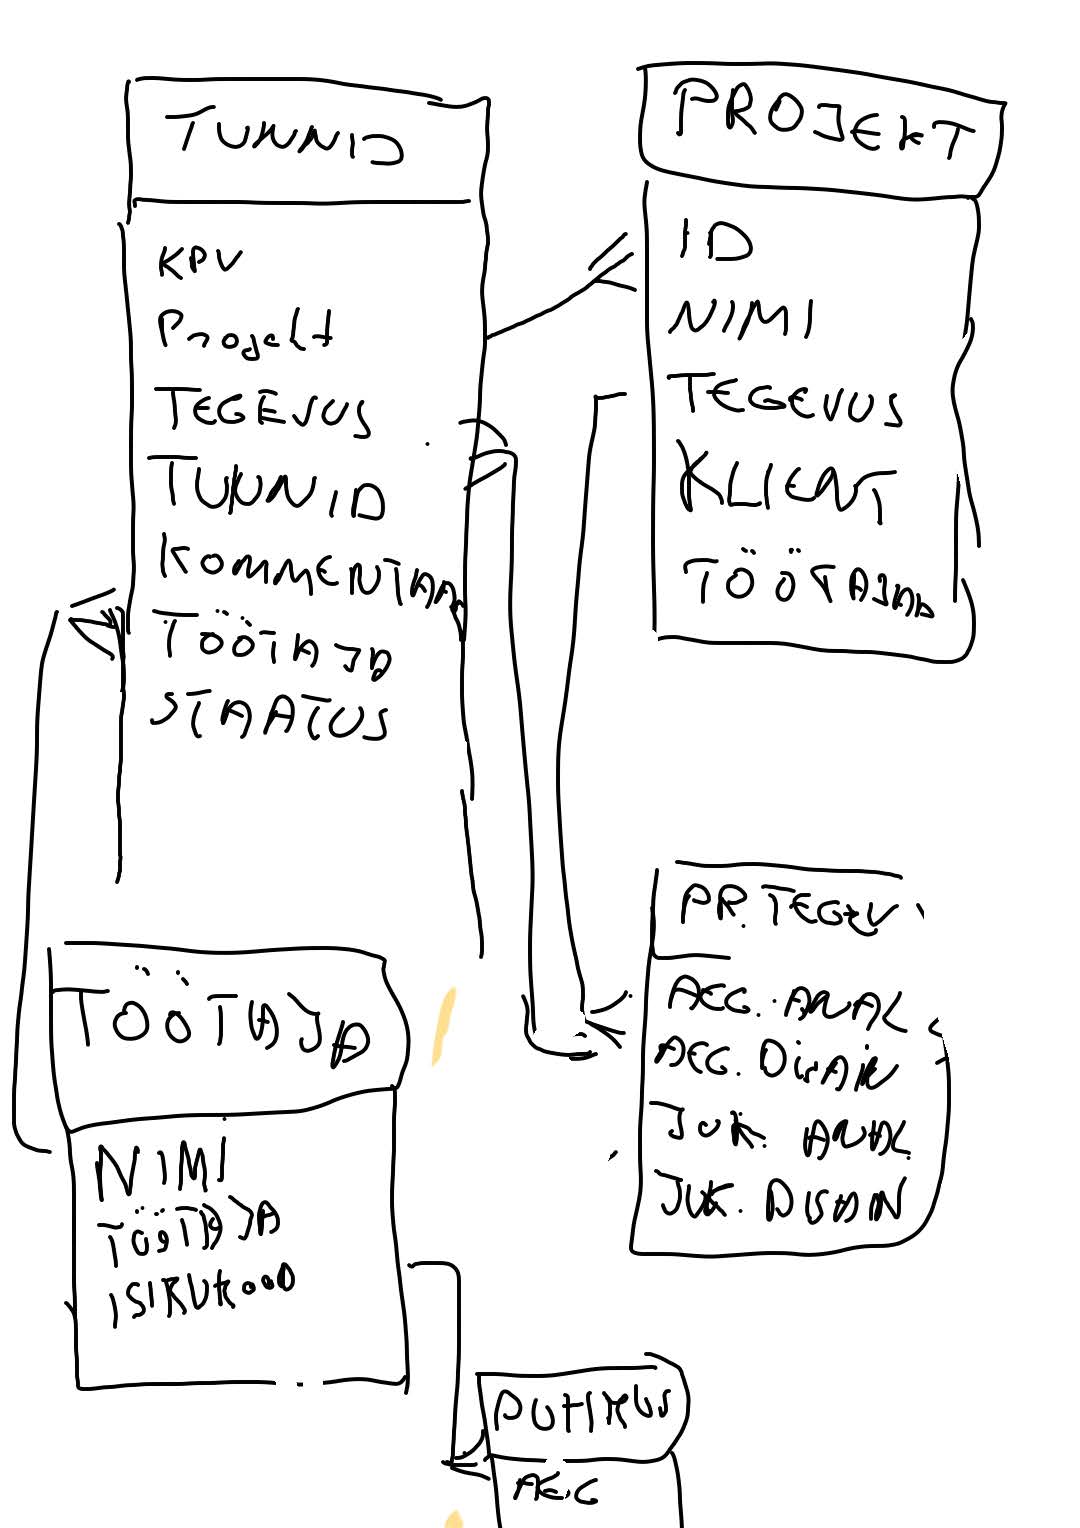 TUNNID
KPV
Projekt
TEGEVUS
TUNNID
KOMMENTAAR
TÖÖTAJA
STAATUS
PROJEKT
ID
NIMI
TEGEVUS
KLIENT
TÖÖTAJAD
PR. TEGEV
AEG. ANAL
AEG. DISAIN
JUK. ANAL.
JUK. DISAIN
TÖÖTAJA
NIMI
TÖÖTAJA
ISIKUKOOD
PUHKUS
AEG